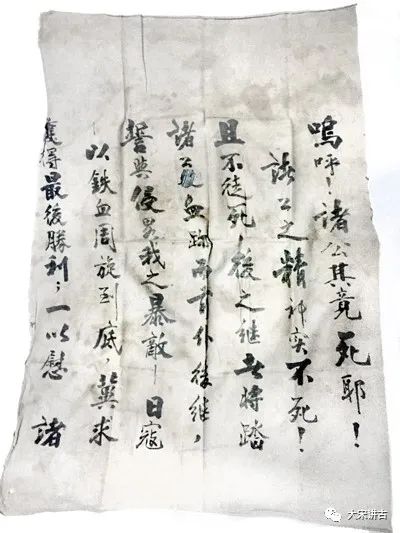 嗚呼！諸公其竟死耶！
諸公之精神实不死！
且不徒死！後之继者将踏
諸公血跡而前仆後继，
誓與侵畧我之暴敵—日寇
以鐵血周旋到底，冀求
獲得最後勝利；一以慰 諸
大宋讲古